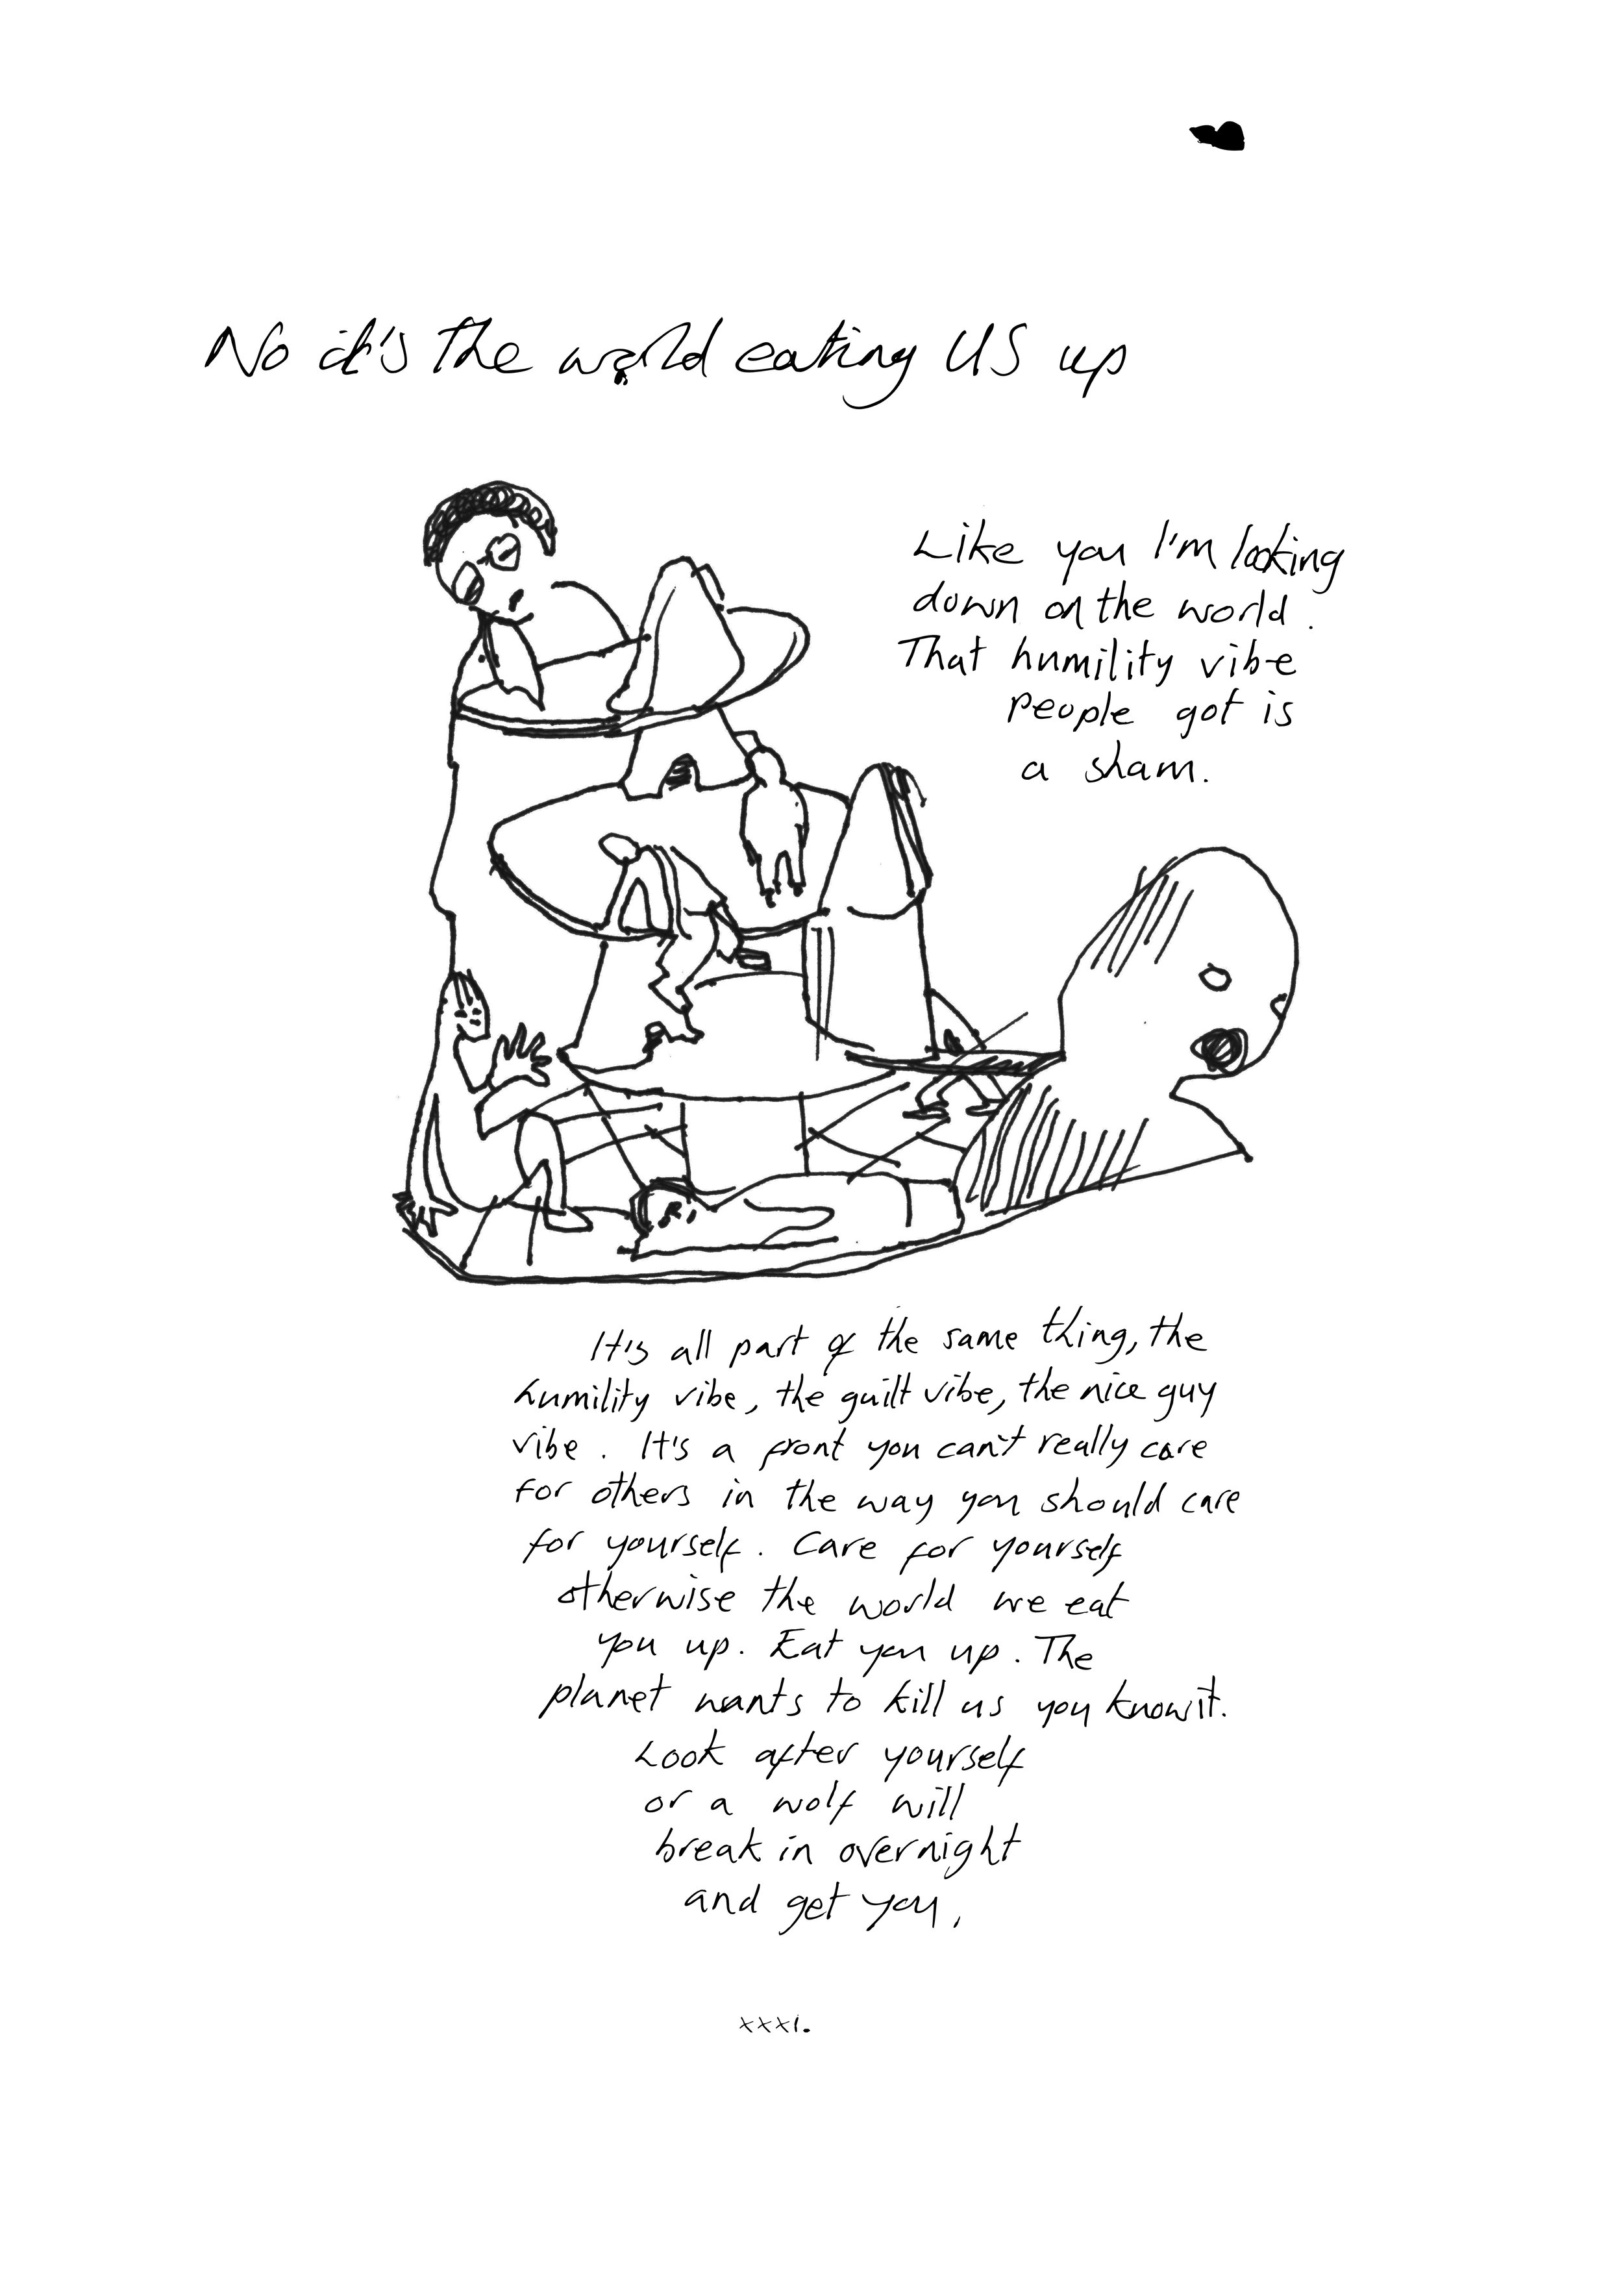 No it's the world eating US up
Like you I'm looking
down on the world.
That humility vibe
people got is
a sham.
It's all part of the same thing, the
humility vibe, the guilt vibe, the nice guy
vibe. It's a front you can't really care
for others in the way you should care
for yourself. Care for yourself
otherwise the world we eat
you up. Eat you up. The
planet wants to kill us you know it.
Look after yourself
or a wolf will
break in overnight
and get you,
xxxi.